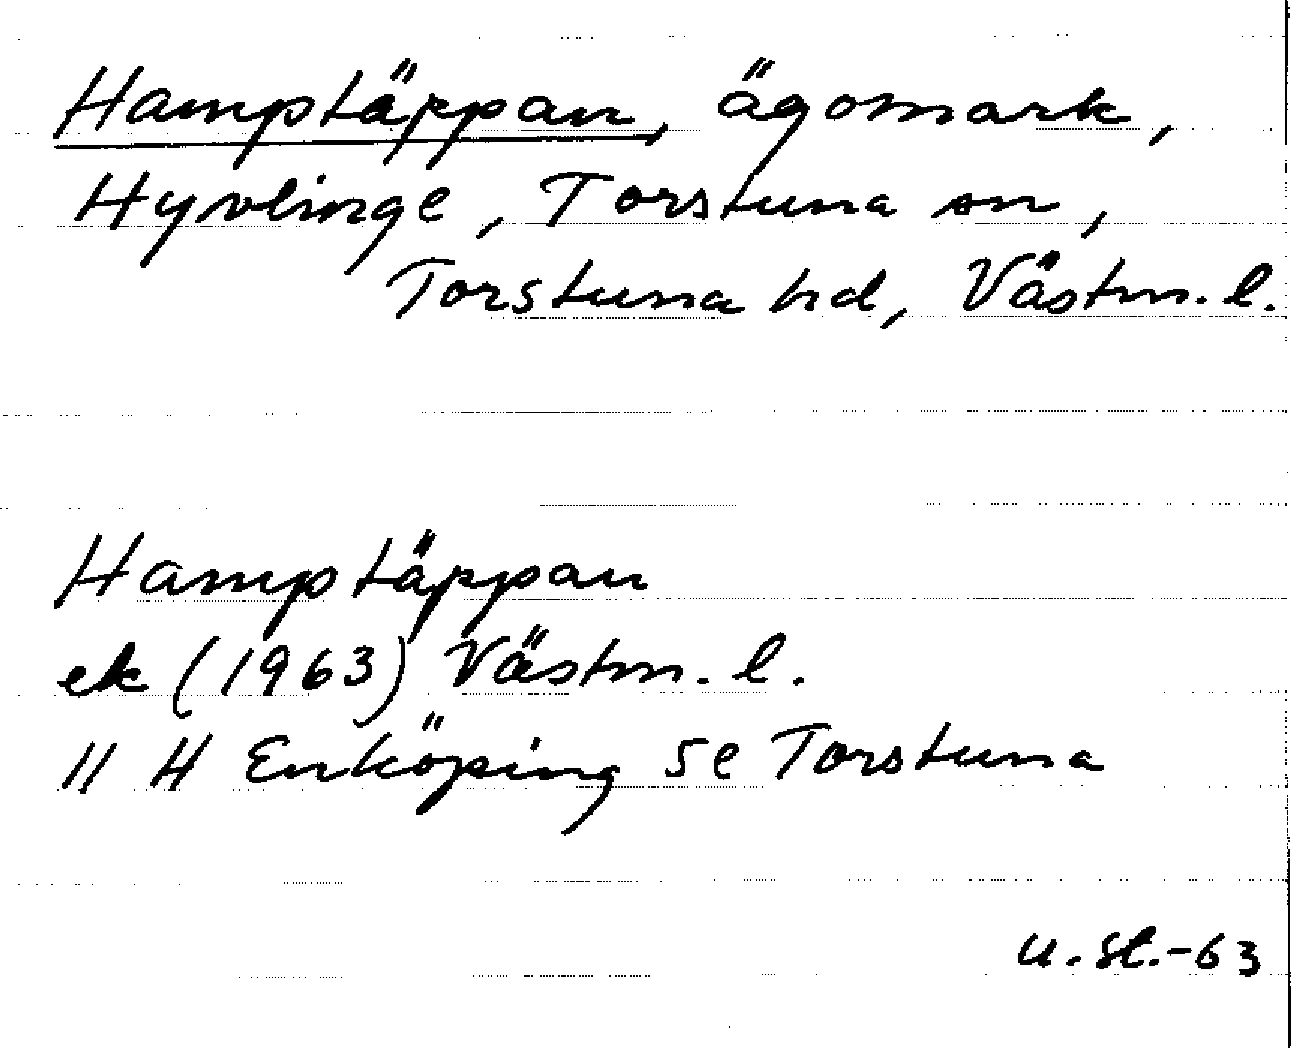 Hamptäppan, ägomark,
Hyvlinge, Torstuna sn,
Torstuna hd, Västm. l.
Hamptäppan
ek (1963) Västm. l.
11 H Enköping 5e Torstuna
U. St.-63